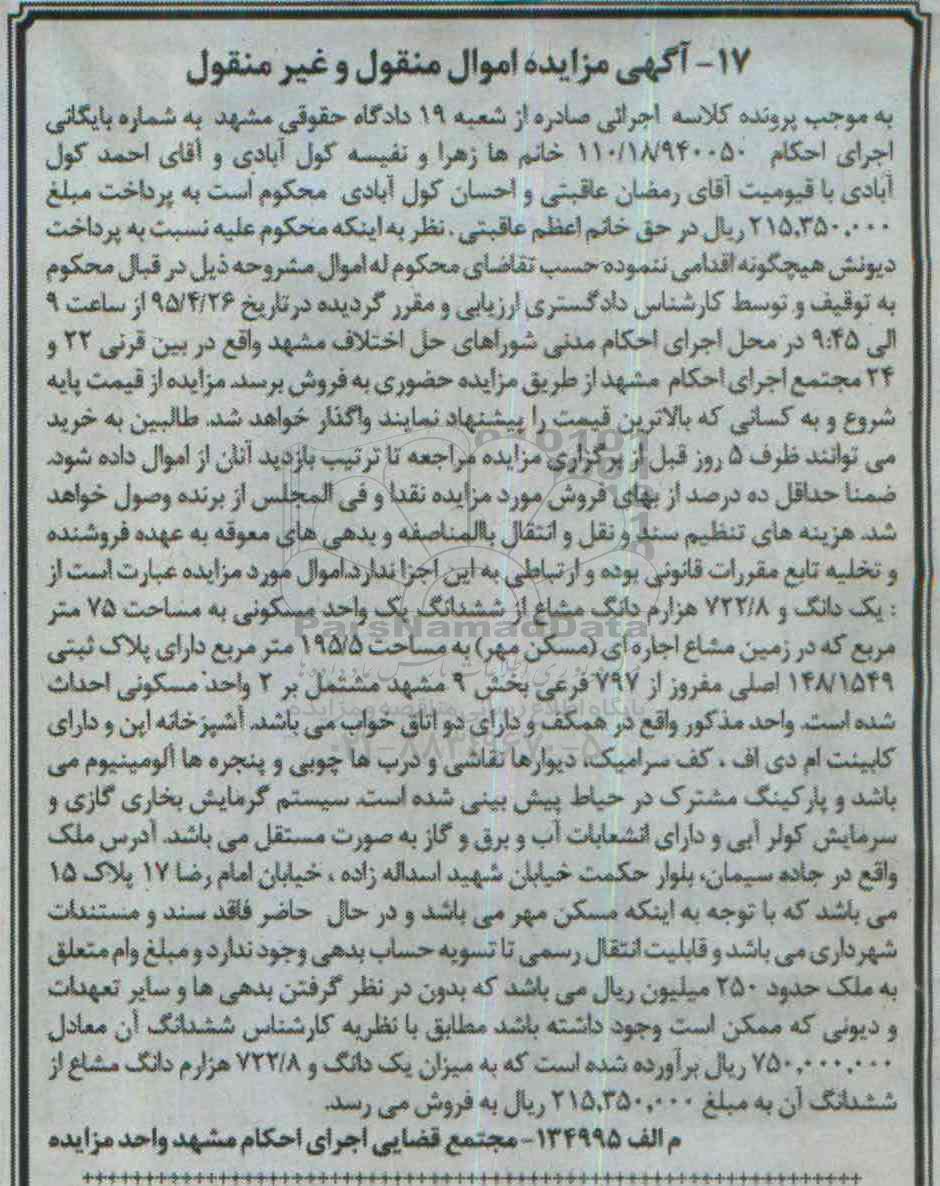 ۱۷- آگهی مزایده اموال منقول و غیر منقول
به موجب پرونده کلاسه اجرائی صادره از شعبه ۱۹ دادگاه حقوقی مشهد به شماره بایگانی
اجرای احکام ۱۱۰/۱۸/۹۴۰۰۵۰ خانم ها زهرا و نفیسه کول آبادی و آقای احمد کول
آبادی با قیومیت آقای رمضان عاقبتی و احسان کول آبادی محکوم است به پرداخت مبلغ
۲۱۵,۳۵۰,۰۰۰ ریال در حق خانم اعظم عاقبتی . نظر به اینکه محکوم علیه نسبت به پرداخت
دیونش هیچگونه اقدامی ننموده حسب تقاضای محکوم له اموال مشروحه ذیل در قبال محکوم
به توقیف و توسط کارشناس دادگستری ارزیابی و مقرر گردیده درتاریخ ۹۵/۴/۲۶ از ساعت ۹
الی ۹:۴۵ در محل اجرای احکام مدنی شوراهای حل اختلاف مشهد واقع در بین قرنی ۲۲ و
۲۴ مجتمع اجرای احکام مشهد از طریق مزایده حضوری به فروش برسد. مزایده از قیمت پایه
شروع و به کسانی که بالاترین قیمت را پیشنهاد نمایند واگذار خواهد شد. طالبین به خرید
می توانند ظرف ۵ روز قبل از برگزاری مزایده مراجعه تا ترتیب بازدید آنان از اموال داده شود.
ضمنا حداقل ده درصد از بهای فروش مورد مزایده نقدا و فی المجلس از برنده وصول خواهد
شد. هزینه های تنظیم سند و نقل و انتقال باالمناصفه و بدهی های معوقه به عهده فروشنده
و تخلیه تابع مقررات قانونی بوده و ارتباطی به این اجرا ندارد.اموال مورد مزایده عبارت است از
: یک دانگ و ۷۲۲/۸ هزارم دانگ مشاع از ششدانگ یک واحد مسکونی به مساحت ۷۵ متر
ParsNamadData
مربع که در زمین مشاع اجاره ای (مسکن مهر) به مساحت ۱۹۵/۵ متر مربع دارای پلاک ثبتی
۱۴۸/۱۵۴۹ اصلی مفروز از ۷۹۷ فرعی بخش ۹ مشهد مشتمل بر ۲ واحد مسکونی احداث
پایگاه اطلاع رسانی مناقصه و مزایده
شده است. واحد مذکور واقع در همکف و دارای دو اتاق خواب می باشد. آشپزخانه اپن و دارای
کابینت ام دی اف ، کف سرامیک، دیوارها نقاشی و درب ها چوبی و پنجره ها آلومینیوم می
باشد و پارکینگ مشترک در حیاط پیش بینی شده است. سیستم گرمایش بخاری گازی و
سرمایش کولر آبی و دارای انشعابات آب و برق و گاز به صورت مستقل می باشد. آدرس ملک
واقع در جاده سیمان، بلوار حکمت خیابان شهید اسداله زاده ، خیابان امام رضا ۱۷ پلاک ۱۵
می باشد که با توجه به اینکه مسکن مهر می باشد و در حال حاضر فاقد سند و مستندات
شهرداری می باشد و قابلیت انتقال رسمی تا تسویه حساب بدهی وجود ندارد و مبلغ وام متعلق
به ملک حدود ۲۵۰ میلیون ریال می باشد که بدون در نظر گرفتن بدهی ها و سایر تعهدات
و دیونی که ممکن است وجود داشته باشد مطابق با نظریه کارشناس ششدانگ آن معادل
۷۵۰,۰۰۰,۰۰۰ ریال برآورده شده است که به میزان یک دانگ و ۷۲۲/۸ هزارم دانگ مشاع از
ششدانگ آن به مبلغ ۲۱۵,۳۵۰,۰۰۰ ریال به فروش می رسد.
م الف ۱۳۴۹۹۵- مجتمع قضایی اجرای احکام مشهد واحد مزایده